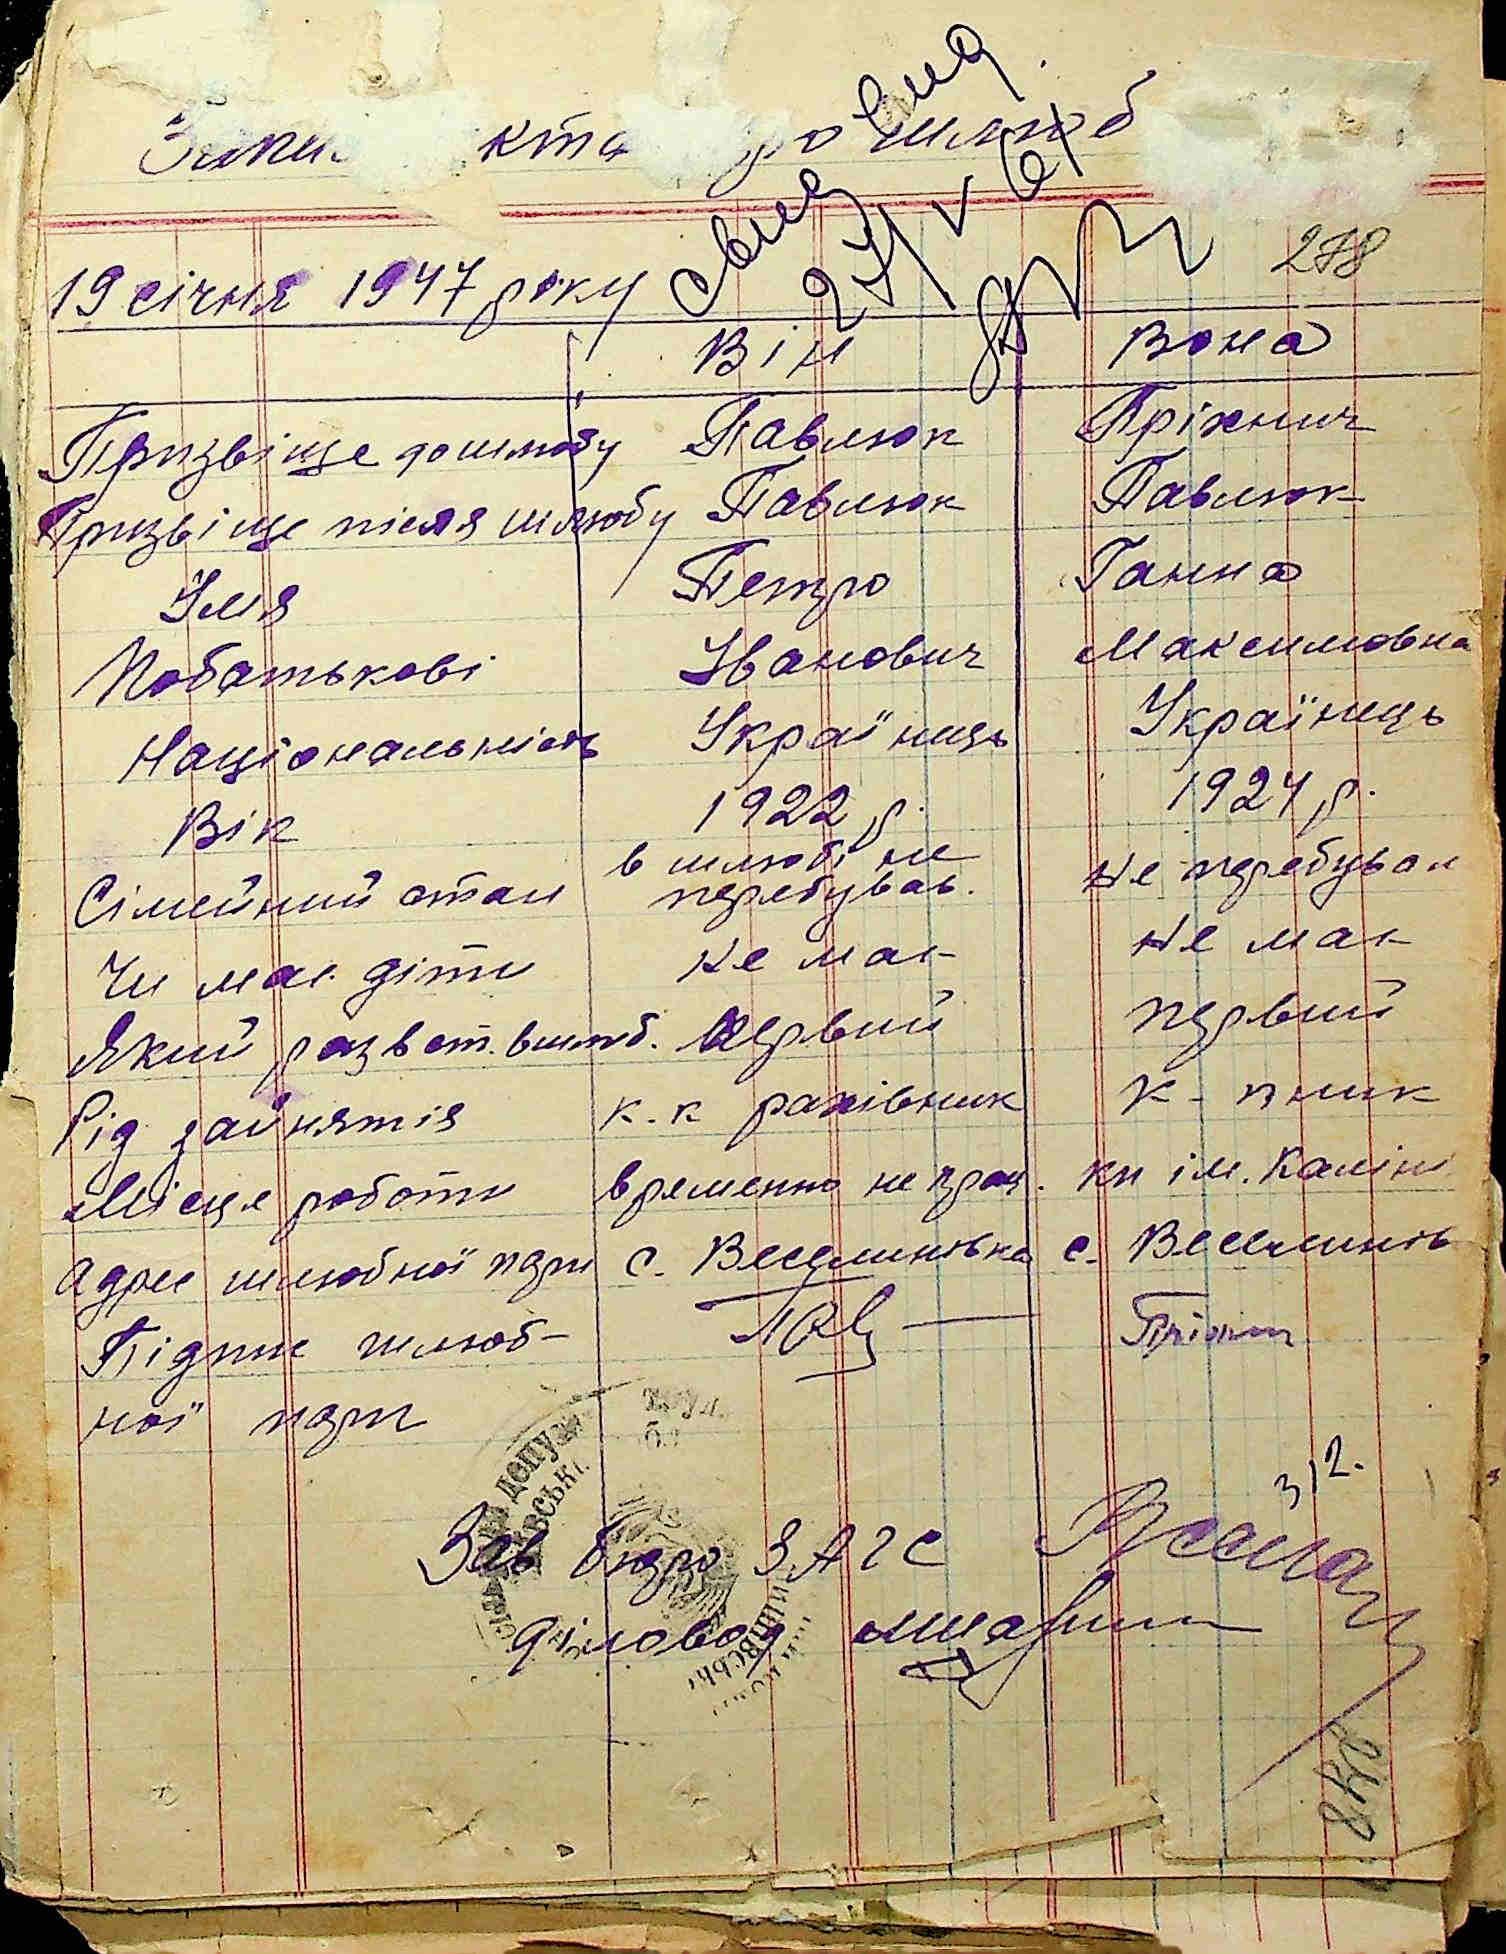 шлюб
278
19 січня 1947 року
Він Вона
Призвіще до шлюбу Павлюк Пріхнич
Призвіще після шлюбу Павлюк Павлюк
Імя Петро Ганна
Побатькові Іванович Максимовна
Національність Українець Українець
Вік 1922 р. 1924 р.
Сімейний стан в шлюбі не перебував. не перебувал
Чи має діти не має не має
Який раз вст. в шлюб. первий первий
Рід зайнятія к.к рахівник к-пник
Місце роботи временно не прац. кп ім. Калін
Адрес шлюбної пари с. Веселинівка с. Веселинів
Підпис шлюб- Пав
ної пари
312.
Зав бюро ЗАГС
Діловод
278